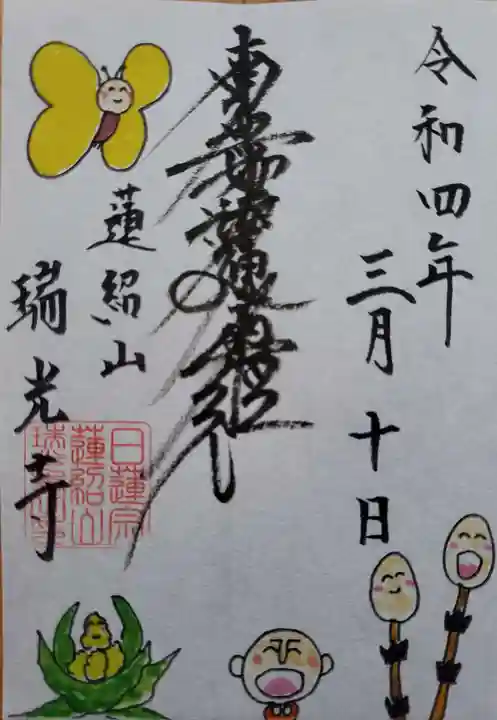 令和四年
三月十日
南無妙法蓮華経
蓮紹山
瑞光寺
日蓮宗
蓮紹山
瑞光寺